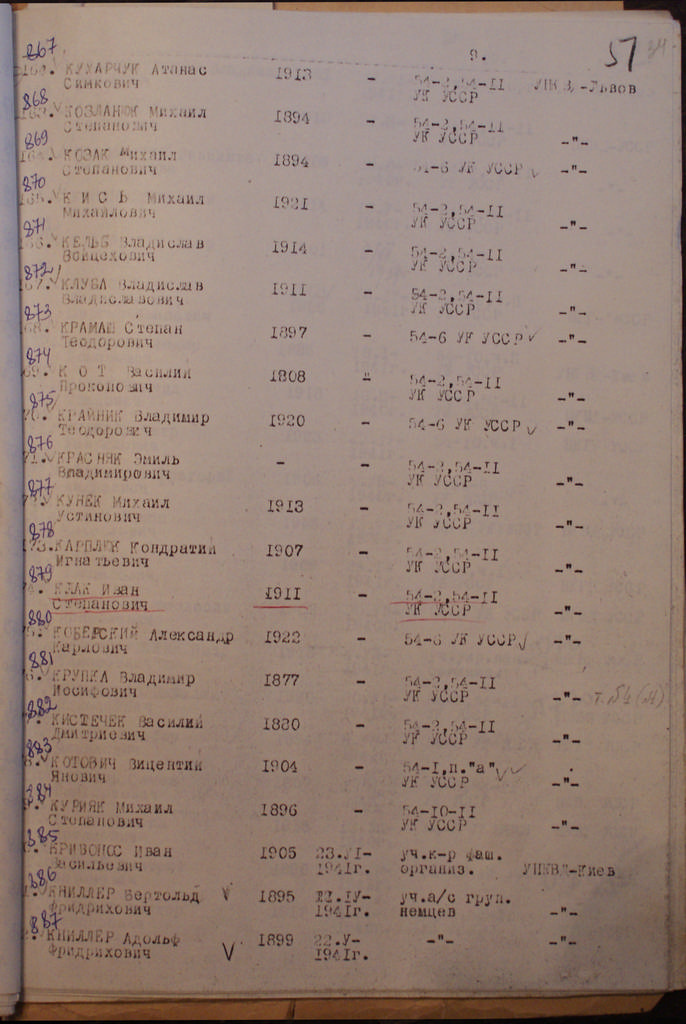 9.
57
867
КУХАРЧУК Атанас 1913 - 54-2,54-II УНКВД-Львов
Симкович УК УССР
868
КОЗЛАНЮК Михаил 1894 - 54-2,54-II
Степанович УК УССР -"-
869
КОЗАК Михаил 1894 - 54-6 УК УССР -"-
Степанович
870
К И С Ь Михаил 1921 - 54-2,54-II
Михайлович УК УССР -"-
871
КЕЛЬБ Владислав 1914 - 54-2,54-II
Войцехович УК УССР -"-
872
КЛУБА Владислав 1911 - 54-2,54-II
Владиславович УК УССР -"-
873
КРАМАЦ Степан 1897 - 54-6 УК УССР -"-
Теодорович
874
К О Т Василий 1808 - 54-2,54-II
Прокопович УК УССР -"-
875
КРАЙНИК Владимир 1920 - 54-6 УК УССР -"-
Теодорович
876
КРАСНЯК Эмиль - - 54-2,54-II
Владимирович УК УССР -"-
877
КУНЕК Михаил 1913 - 54-2,54-II
Устинович УК УССР -"-
878
КАРПЛЕК Кондратий 1907 - 54-2,54-II
Игнатьевич УК УССР -"-
879
КЛАК Иван 1911 - 54-2,54-II
Степанович УК УССР -"-
880
КОБЕРСКИЙ Александр 1922 - 54-6 УК УССР -"-
Карлович
881
КРУПКА Владимир 1877 - 54-2,54-II
Иосифович УК УССР -"-
882
КИСТЕЧЕК Василий 1880 - 54-2,54-II
Дмитриевич УК УССР -"-
883
КОТОВИЧ Вицентий 1904 - 54-I,п."а"
Янович УК УССР -"-
884
КУРИЯК Михаил 1896 - 54-10-II
Степанович УК УССР -"-
885
КРИВОНОС Иван 1905 23.УІ- уч.к-р фаш.
Васильевич 1941г. организ. УНКВД-Киев
886
КНИЛЛЕР Бертольд 1895 22.ІУ- уч.а/с груп.
Фридрихович 1941г. немцев -"-
887
КНИЛЛЕР Адольф 1899 22.У- -"- -"-
Фридрихович 1941г.